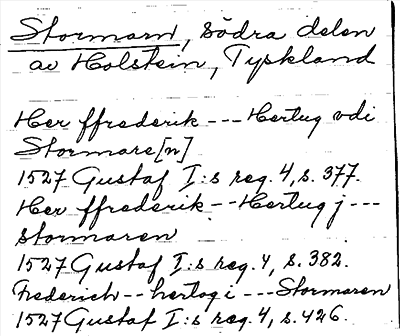 Stormarn, södra delen
av Holstein, Tyskland
Her ffrederik --- Hertug vdi
Stormare[n]
1527 Gustaf I:s reg. 4, s. 377.
Her ffrederik -- Hertug j ---
stormaren
1527 Gustaf I:s reg. 4, s. 382.
Frederich -- hertog i --- Stormaren
1527 Gustaf I:s reg. 4, s. 426.